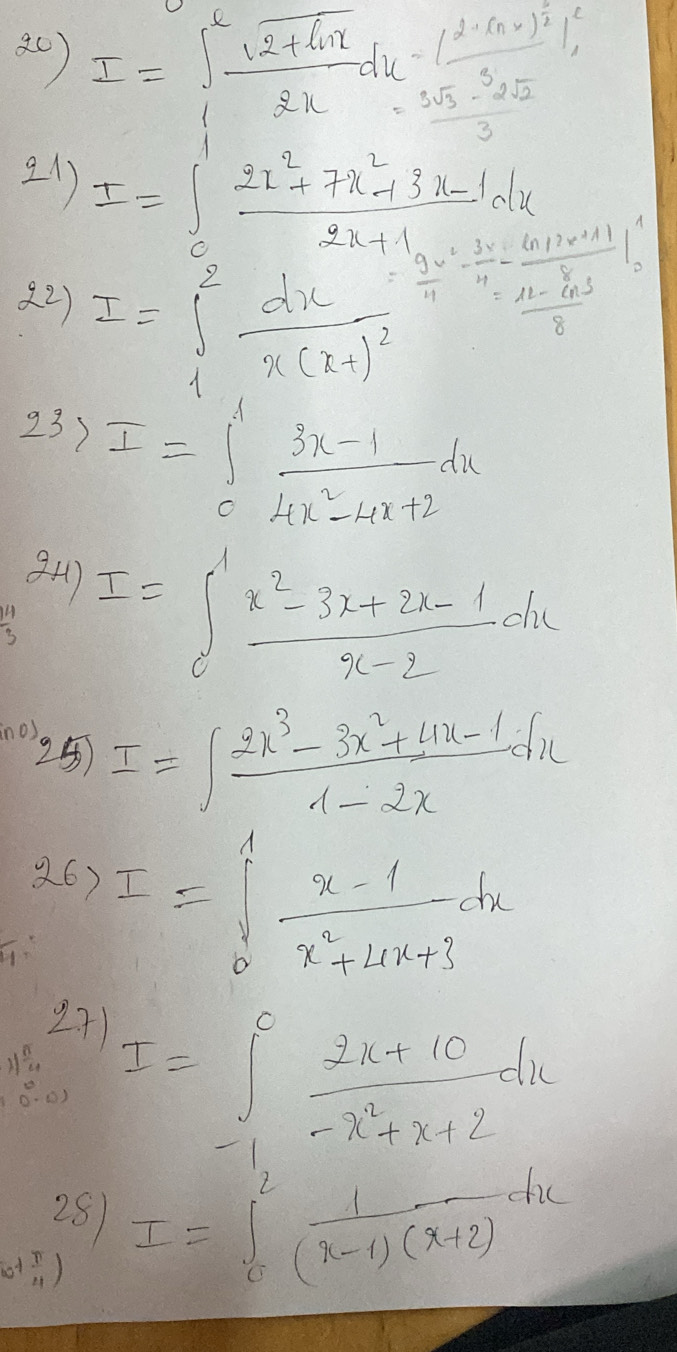 20) I = ∫₁^e √(2+lnx)/(2x) dx = (2+lnx)^(3/2)/3 |₁^e
= (3√3 - 2√2)/3
21) I = ∫₀¹ (2x²+7x²+3x-1)/(2x+1) dx
= 9x²/4 - 3x/4 - ln|2x+1|/8 |₀¹
= (12-ln3)/8
22) I = ∫₁² dx/(x(x+)²)
23) I = ∫₀¹ (3x-1)/(4x²-4x+2) dx
24) I = ∫₀¹ (x²-3x+2x-1)/(x-2) dx
25) I = ∫ (2x³-3x²+4x-1)/(1-2x) dx
26) I = ∫₀¹ (x-1)/(x²+4x+3) dx
27) I = ∫₋₁⁰ (2x+10)/(-x²+x+2) dx
28) I = ∫₀² 1/((x-1)(x+2)) dx